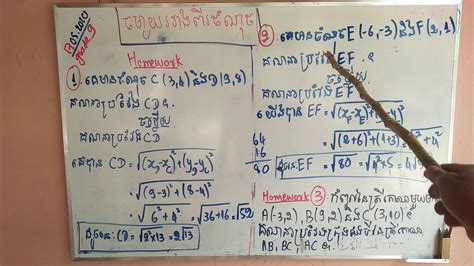 BOS.2020
grade 9
ចម្ងាយរវាងពីរចំណុច
Homework
1. គេមានចំណុច C (3,4) និង D(9,8)
គណនាប្រវែង CD ។
ចម្លើយ
គណនាប្រវែង CD
គេបាន CD = √(x₂-x₁)²+(y₂-y₁)²
= √(9-3)²+(8-4)²
= √6²+4² = √36+16 = √52
ដូចនេះ: CD = √2²×13 = 2√13
2. គេមានចំណុច E (-6,-3) និង F(2,1)
គណនាប្រវែង EF ។
ចម្លើយ
គណនាប្រវែង EF
យើងបាន EF = √(x₂-x₁)²+(y₂-y₁)²
= √(2+6)²+(1+3)² = √8²+4²
64
16
80
ដូចនេះ: EF = √80 = √4²×5 = 4√5
Homework 3
A(-3,2), B(9,2) និង C(3,10) ។
គណនាប្រវែងជ្រុងនៃត្រីកោណ
AB, BC, AC ។